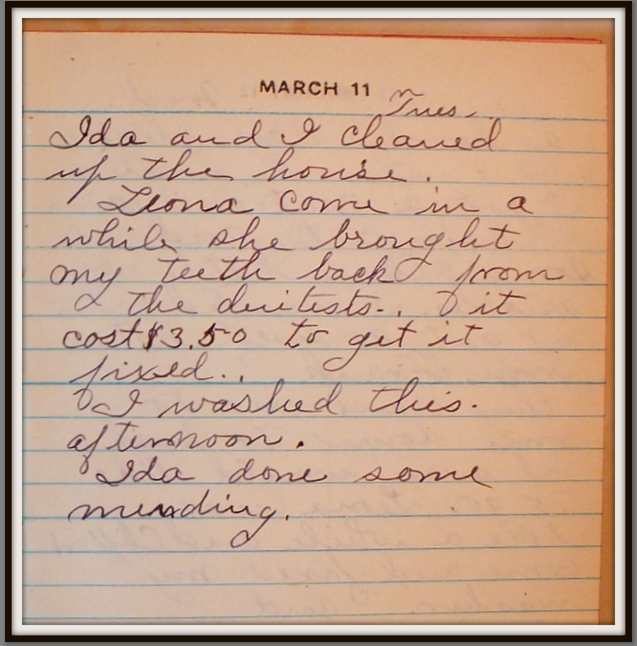 MARCH 11
Tues.
Ida and I cleaned
up the house.
Leona come in a
while she brought
my teeth back from
the deitests.. it
cost $3.50 to get it
fixed..
I washed this.
afternoon.
Ida done some
mending.